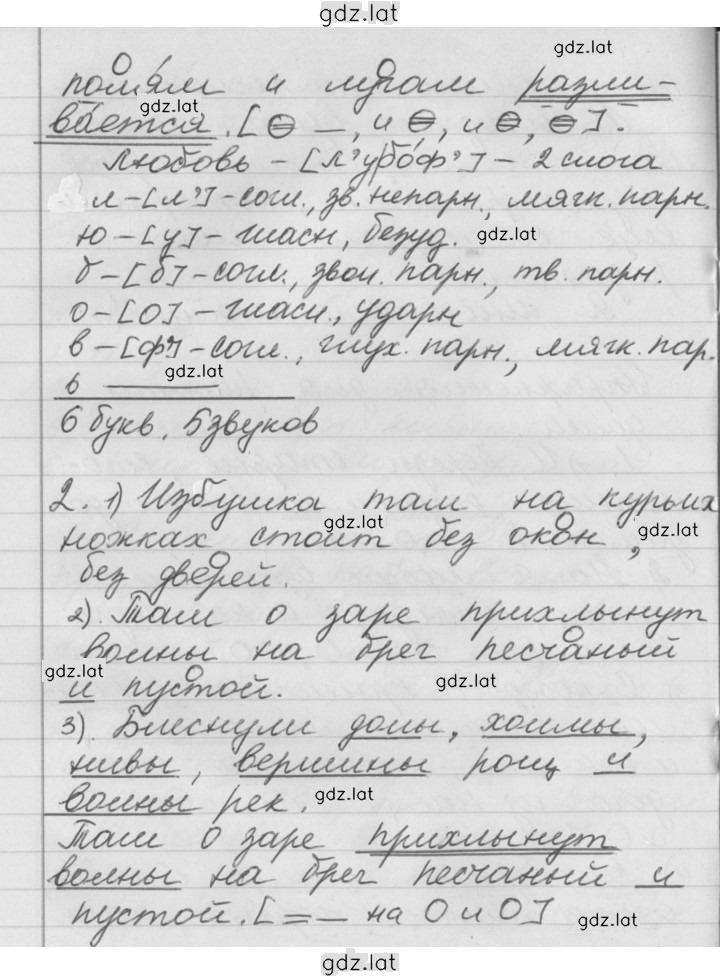 gdz.lat
gdz.lat
полям и лугам разли-
gdz.lat
вается. [⊖ —, и ⊖, и ⊖, ⊖].
любовь – [л'убо́ф'] – 2 слога
л – [л'] – согл., зв. непарн., мягк. парн.
ю – [у] – гласн, безуд. gdz.lat
б – [б] – согл., звон. парн., тв. парн.
о – [о] – гласн., ударн
в – [ф'] – согл., глух. парн., мягк. пар.
gdz.lat
ь ———
6 букв, 5 звуков
2. 1) Избушка там на курьих
gdz.lat
ножках стоит без окон,
gdz.lat
без дверей.
2). Там о заре прихлынут
волны на брег песчаный
gdz.lat
и пустой. gdz.lat
3). Блеснули долы, холмы,
нивы, вершины рощ и
волны рек. gdz.lat
Там о заре прихлынут
волны на брег песчаный и
пустой. [= — на О и О]
gdz.lat
gdz.lat